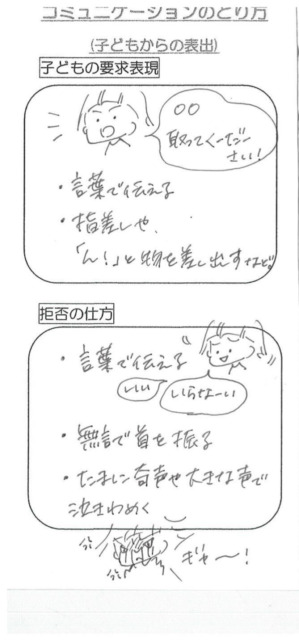 コミュニケーションのとり方
(子どもからの表出)
子どもの要求表現
○○
取ってくーださい!
・言葉で伝える
・指差しや、
「ん!」と物を差し出すなど。
拒否の仕方
・言葉で伝える
いい
いらなーい
・無言で首を振る
・たまに奇声や大きな声で
泣きわめく
ギャ〜!